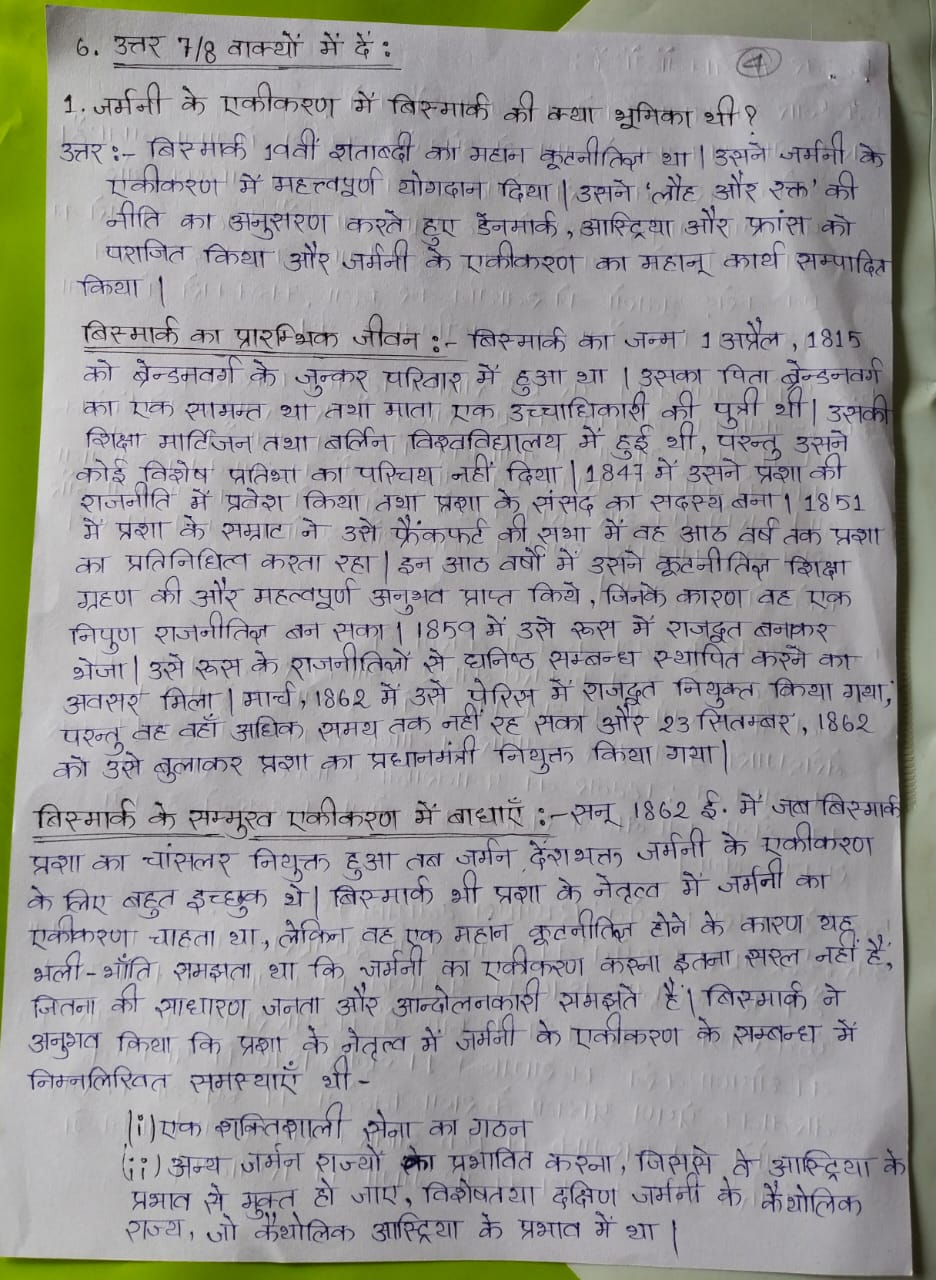 6. उत्तर 7/8 वाक्यों में दें :
4
1. जर्मनी के एकीकरण में बिस्मार्क की क्या भूमिका थी ?
उत्तर :- बिस्मार्क 19वीं शताब्दी का महान कूटनीतिज्ञ था | उसने जर्मनी के
एकीकरण में महत्त्वपूर्ण योगदान दिया | उसने 'लौह और रक्त' की
नीति का अनुसरण करते हुए डेनमार्क, आस्ट्रिया और फ्रांस को
पराजित किया और जर्मनी के एकीकरण का महान् कार्य सम्पादित
किया |
बिस्मार्क का प्रारम्भिक जीवन :- बिस्मार्क का जन्म 1 अप्रैल, 1815
को ब्रेन्डमवर्ग के जुन्कर परिवार में हुआ था | उसका पिता ब्रेन्डनवर्ग
का एक सामन्त था तथा माता एक उच्चाधिकारी की पुत्री थी | उसकी
शिक्षा मार्टिजन तथा बर्लिन विश्वविद्यालय में हुई थी, परन्तु उसने
कोई विशेष प्रतिभा का परिचय नहीं दिया | 1847 में उसने प्रशा की
राजनीति में प्रवेश किया तथा प्रशा के संसद का सदस्य बना | 1851
में प्रशा के सम्राट ने उसे फ्रैंकफर्ट की सभा में वह आठ वर्ष तक प्रशा
का प्रतिनिधित्व करता रहा | इन आठ वर्षों में उसने कूटनीतिज्ञ शिक्षा
ग्रहण की और महत्वपूर्ण अनुभव प्राप्त किये, जिनके कारण वह एक
निपुण राजनीतिज्ञ बन सका | 1859 में उसे रूस में राजदूत बनाकर
भेजा | उसे रूस के राजनीतिज्ञों से घनिष्ठ सम्बन्ध स्थापित करने का
अवसर मिला | मार्च, 1862 में उसे पेरिस में राजदूत नियुक्त किया गया,
परन्तु वह वहाँ अधिक समय तक नहीं रह सका और 23 सितम्बर, 1862
को उसे बुलाकर प्रशा का प्रधानमंत्री नियुक्त किया गया |
बिस्मार्क के सम्मुख एकीकरण में बाधाएँ :- सन् 1862 ई. में जब बिस्मार्क
प्रशा का चांसलर नियुक्त हुआ तब जर्मन देशभक्त जर्मनी के एकीकरण
के लिए बहुत इच्छुक थे | बिस्मार्क भी प्रशा के नेतृत्व में जर्मनी का
एकीकरण चाहता था, लेकिन वह एक महान कूटनीतिज्ञ होने के कारण यह
भली-भाँति समझता था कि जर्मनी का एकीकरण करना इतना सरल नहीं है,
जितना की साधारण जनता और आन्दोलनकारी समझते हैं | बिस्मार्क ने
अनुभव किया कि प्रशा के नेतृत्व में जर्मनी के एकीकरण के सम्बन्ध में
निम्नलिखित समस्याएँ थी -
(i) एक शक्तिशाली सेना का गठन
(ii) अन्य जर्मन राज्यों को प्रभावित करना, जिससे वे आस्ट्रिया के
प्रभाव से मुक्त हो जाए, विशेषतया दक्षिण जर्मनी के कैथोलिक
राज्य, जो कैथोलिक आस्ट्रिया के प्रभाव में था |